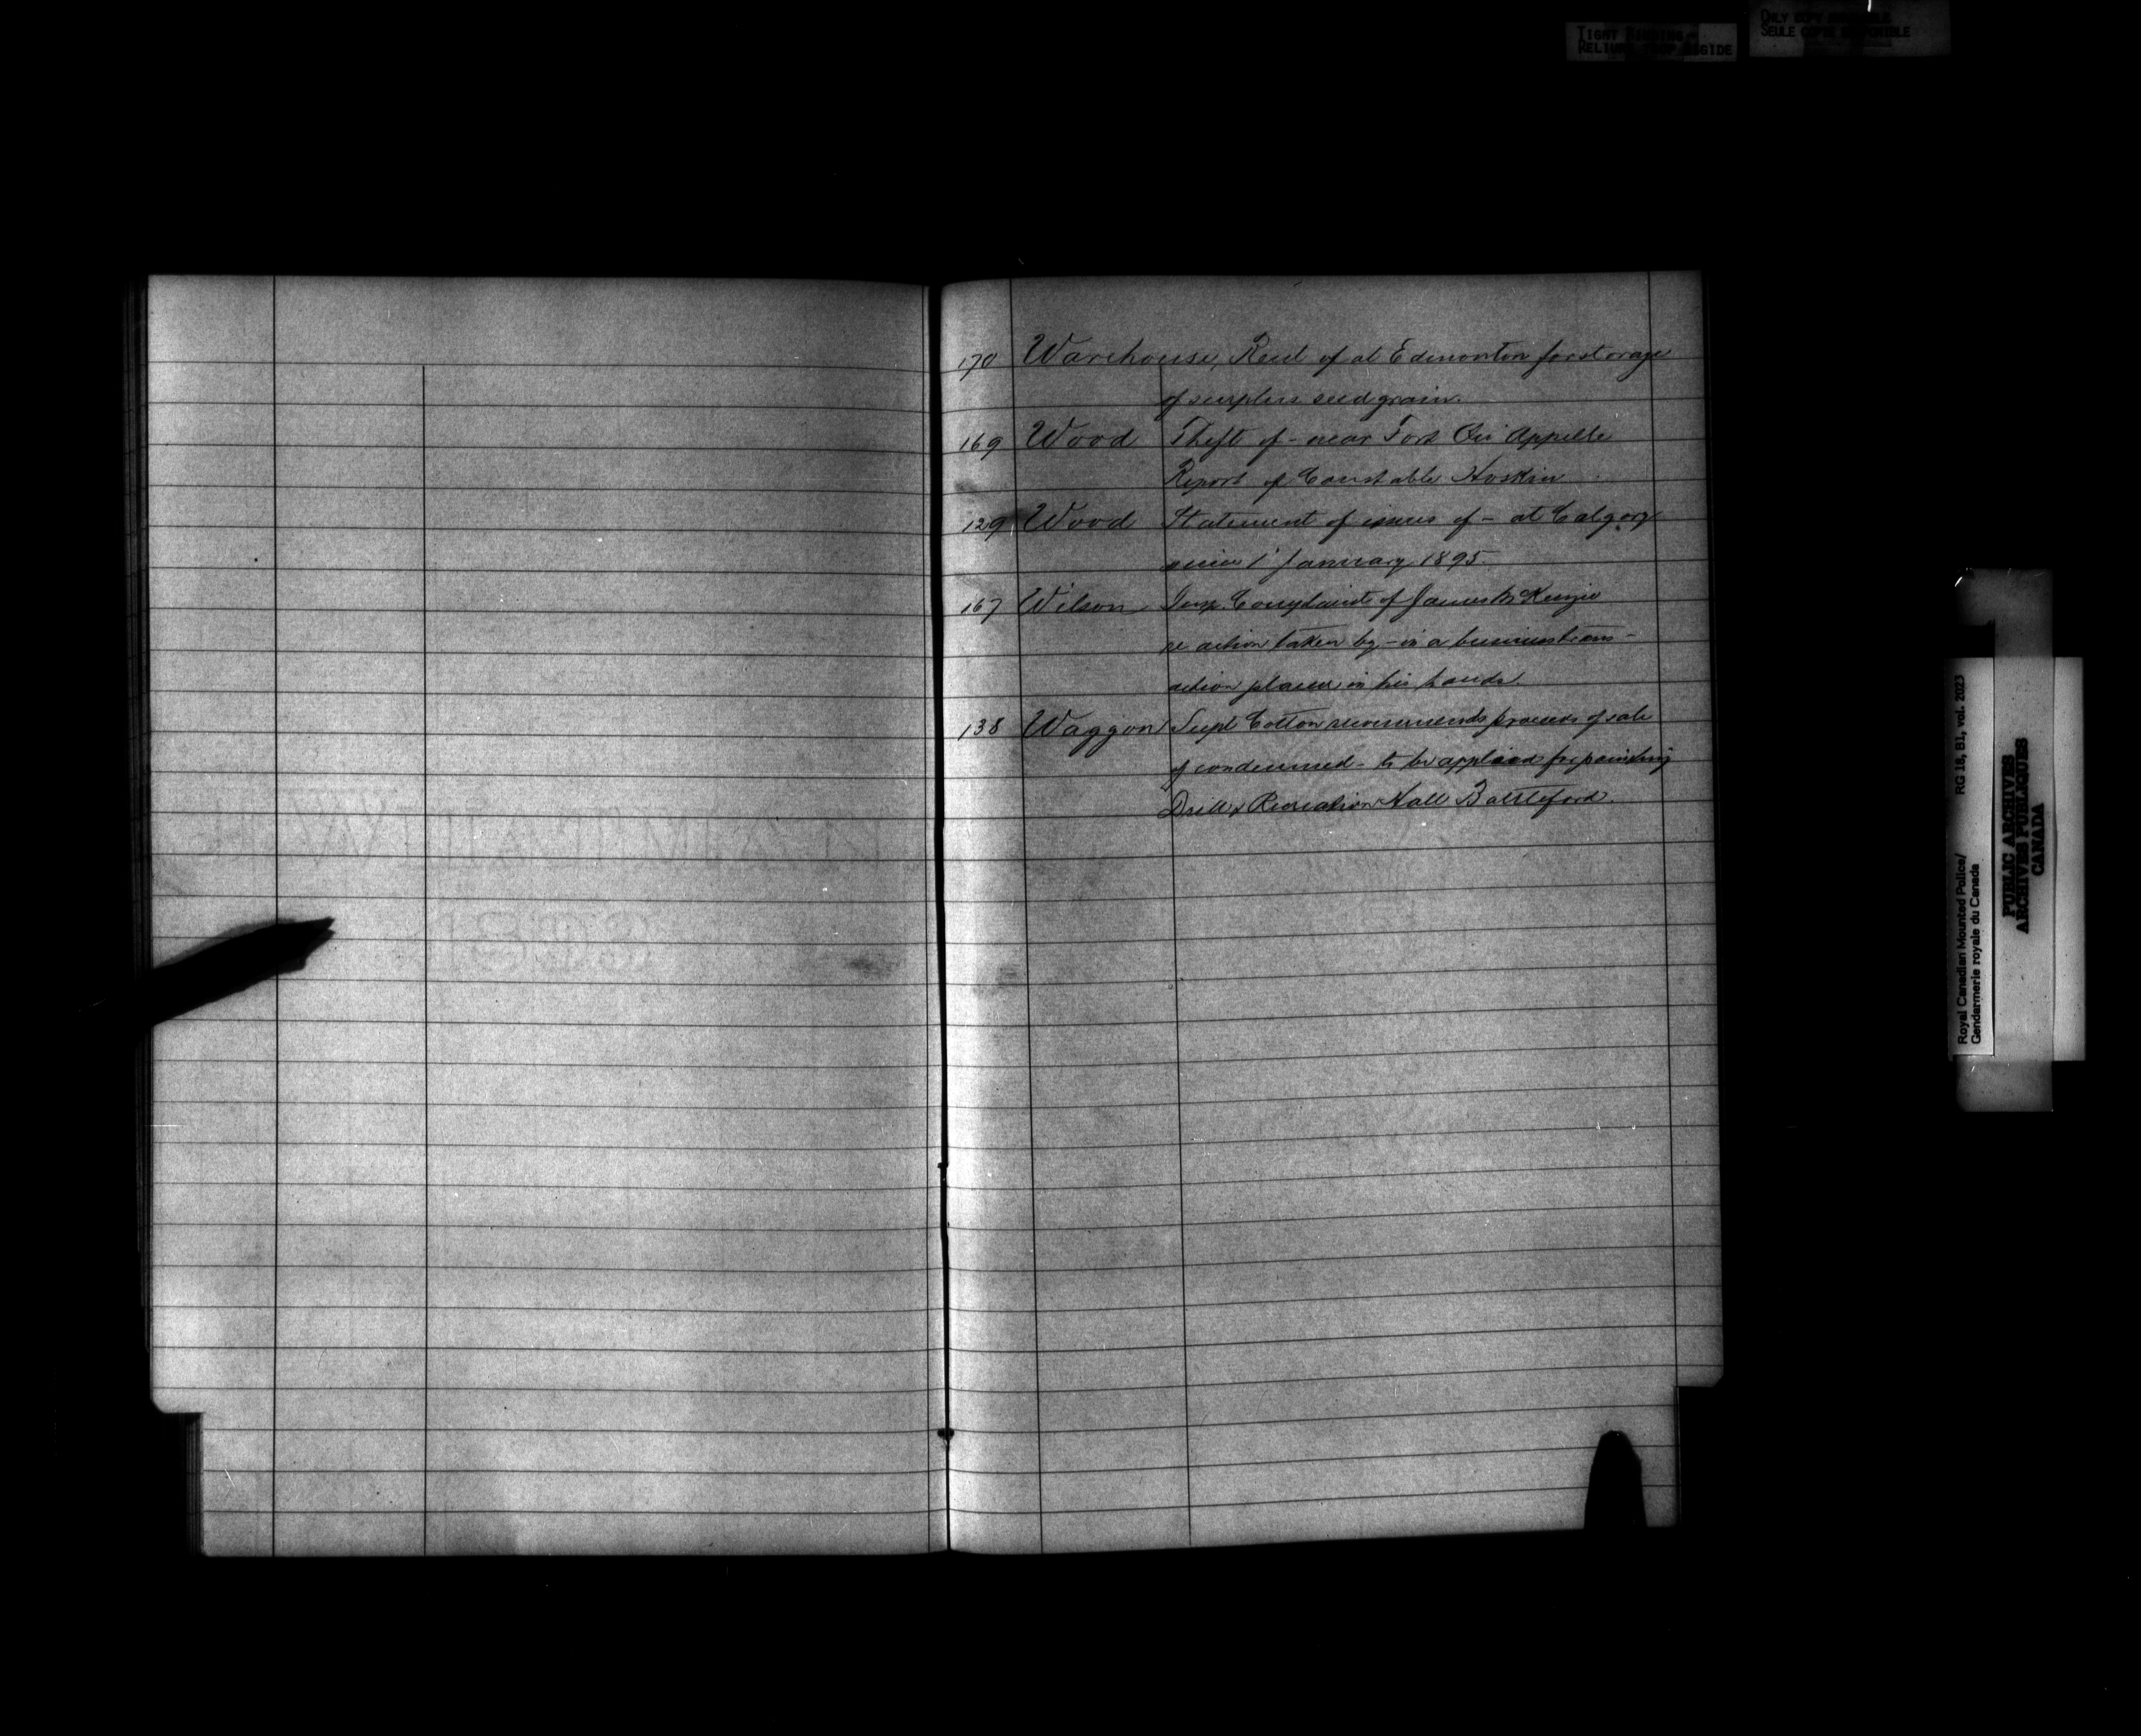 TIGHT BINDING
RELIURE TROP RIGIDE
ONLY COPY AVAILABLE
SEULE COPIE DISPONIBLE
170 Warehouse, Rent of at Edmonton for storage
of surplus seed grain.
169 Wood Theft of - near Fort Qu'Appelle
Report of Constable Hoskin
129 Wood Statement of issues of - at Calgary
since 1' January 1895.
167 Wilson Insp. Complaint of James McKenzie
re action taken by - in a business trans-
action placed in his hands.
138 Waggon Supt Cotton recommends proceeds of sale
of condemned - to be applied
Drill & Recreation Hall Battleford.
Royal Canadian Mounted Police/ RG 18, B1, vol. 2023
Gendarmerie royale du Canada
PUBLIC ARCHIVES
ARCHIVES PUBLIQUES
CANADA